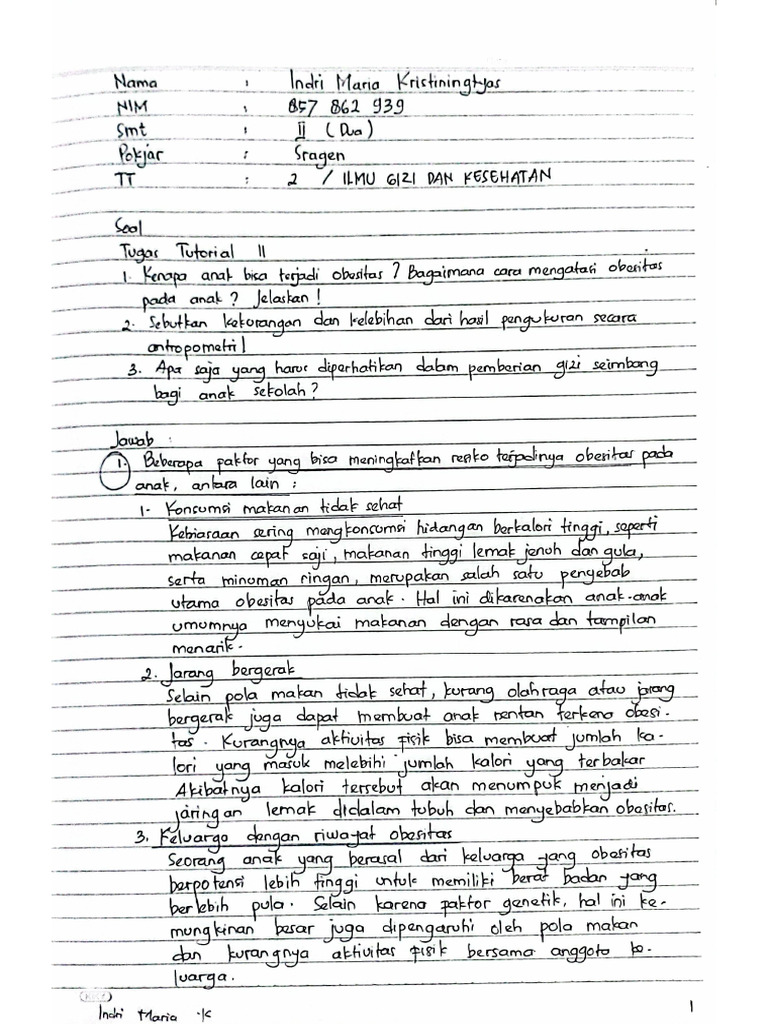 Nama : Indri Maria Kristiningtyas
NIM : 857 862 939
Smt : II (Dua)
Pokjar : Sragen
TT : 2 / ILMU GIZI DAN KESEHATAN
Soal
Tugas Tutorial II
1. Kenapa anak bisa terjadi obesitas ? Bagaimana cara mengatasi obesitas
pada anak ? Jelaskan !
2. Sebutkan kekurangan dan kelebihan dari hasil pengukuran secara
antropometri !
3. Apa saja yang harus diperhatikan dalam pemberian gizi seimbang
bagi anak sekolah ?
Jawab :
1. Beberapa faktor yang bisa meningkatkan resiko terjadinya obesitas pada
anak, antara lain :
1. Konsumsi makanan tidak sehat
Kebiasaan sering mengkonsumsi hidangan berkalori tinggi, seperti
makanan cepat saji, makanan tinggi lemak jenuh dan gula,
serta minuman ringan, merupakan salah satu penyebab
utama obesitas pada anak. Hal ini dikarenakan anak-anak
umumnya menyukai makanan dengan rasa dan tampilan
menarik.
2. Jarang bergerak
Selain pola makan tidak sehat, kurang olahraga atau jarang
bergerak juga dapat membuat anak rentan terkena obesi-
tas. Kurangnya aktivitas fisik bisa membuat jumlah ka-
lori yang masuk melebihi jumlah kalori yang terbakar
Akibatnya kalori tersebut akan menumpuk menjadi
jaringan lemak didalam tubuh dan menyebabkan obesitas.
3. Keluarga dengan riwayat obesitas
Seorang anak yang berasal dari keluarga yang obesitas
berpotensi lebih tinggi untuk memiliki berat badan yang
berlebih pula. Selain karena faktor genetik, hal ini ke-
mungkinan besar juga dipengaruhi oleh pola makan
dan kurangnya aktivitas fisik bersama anggota ke-
luarga.
Indri Maria .K
1